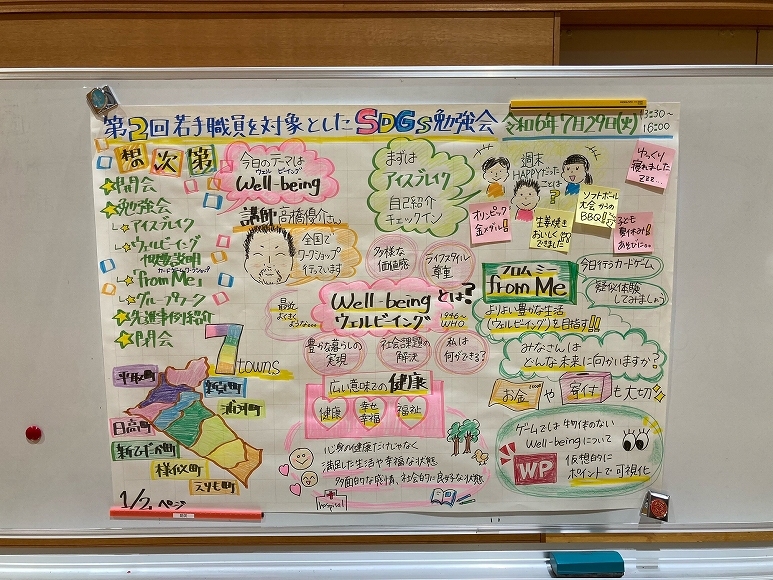 第2回若手職員を対象としたSDGs勉強会
令和6年7月29日(火)
13:30~
16:00
想の次第
☆開会
☆勉強会
☆アイスブレイク
☆ウェルビーイング
概要説明
カードゲームワークショップ
☆「from Me」
☆グループワーク
☆先進事例紹介
☆閉会
今日のテーマは
ウェルビーイング
Well-being
講師 高橋優介さん
全国で
ワークショップ
行っています
まずは
アイスブレイク
自己紹介
チェックイン
週末
HAPPYだった
ことは
?
ゆっくり
寝れました
zzz...
オリンピック
金メダル!
生姜焼き
おいしく
できました
ソフトボール
大会からの
BBQ!!
子ども
夏休み!
あそびに。。
多様な
価値感
ライフスタイル
尊重
最近
よくきく
ような...
Well-being とは?
ウェルビイング
1946~
WHO
豊かな暮らしの
実現
社会課題の
解決
私は
何ができる?
フロム ミー
from Me
今日行うカードゲーム
疑似体験
してみましょう
よりよい豊かな生活
(ウェルビイング)を目指す!!
みなさんは
どんな未来に向かいますか?
お金や寄付も大切
広い意味での健康
健康
幸せ
幸福
福祉
心身の健康だけじゃなく
満足した生活や幸福な状態
多面的な感情、社会的に良好な状態
hospital
ゲームでは物体のない
Well-beingについて
WP
仮想的に
ポイントで可視化
7 towns
平取町
新冠町
浦河町
日高町
新ひだか町
様似町
えりも町
1/2ページ